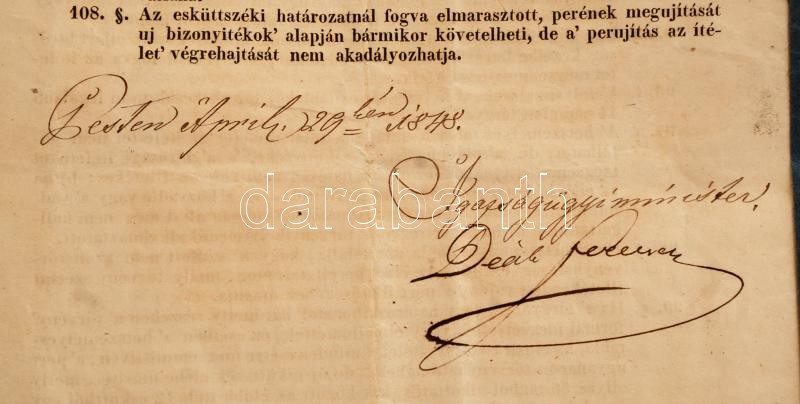 108. §. Az esküttszéki határozatnál fogva elmarasztott, perének megujítását
uj bizonyitékok' alapján bármikor követelheti, de a' perujítás az íté-
let' végrehajtását nem akadályozhatja.
Pesten April. 29kén 1848.
Igazságügyi minister,
Deák Ferencz
darabanth